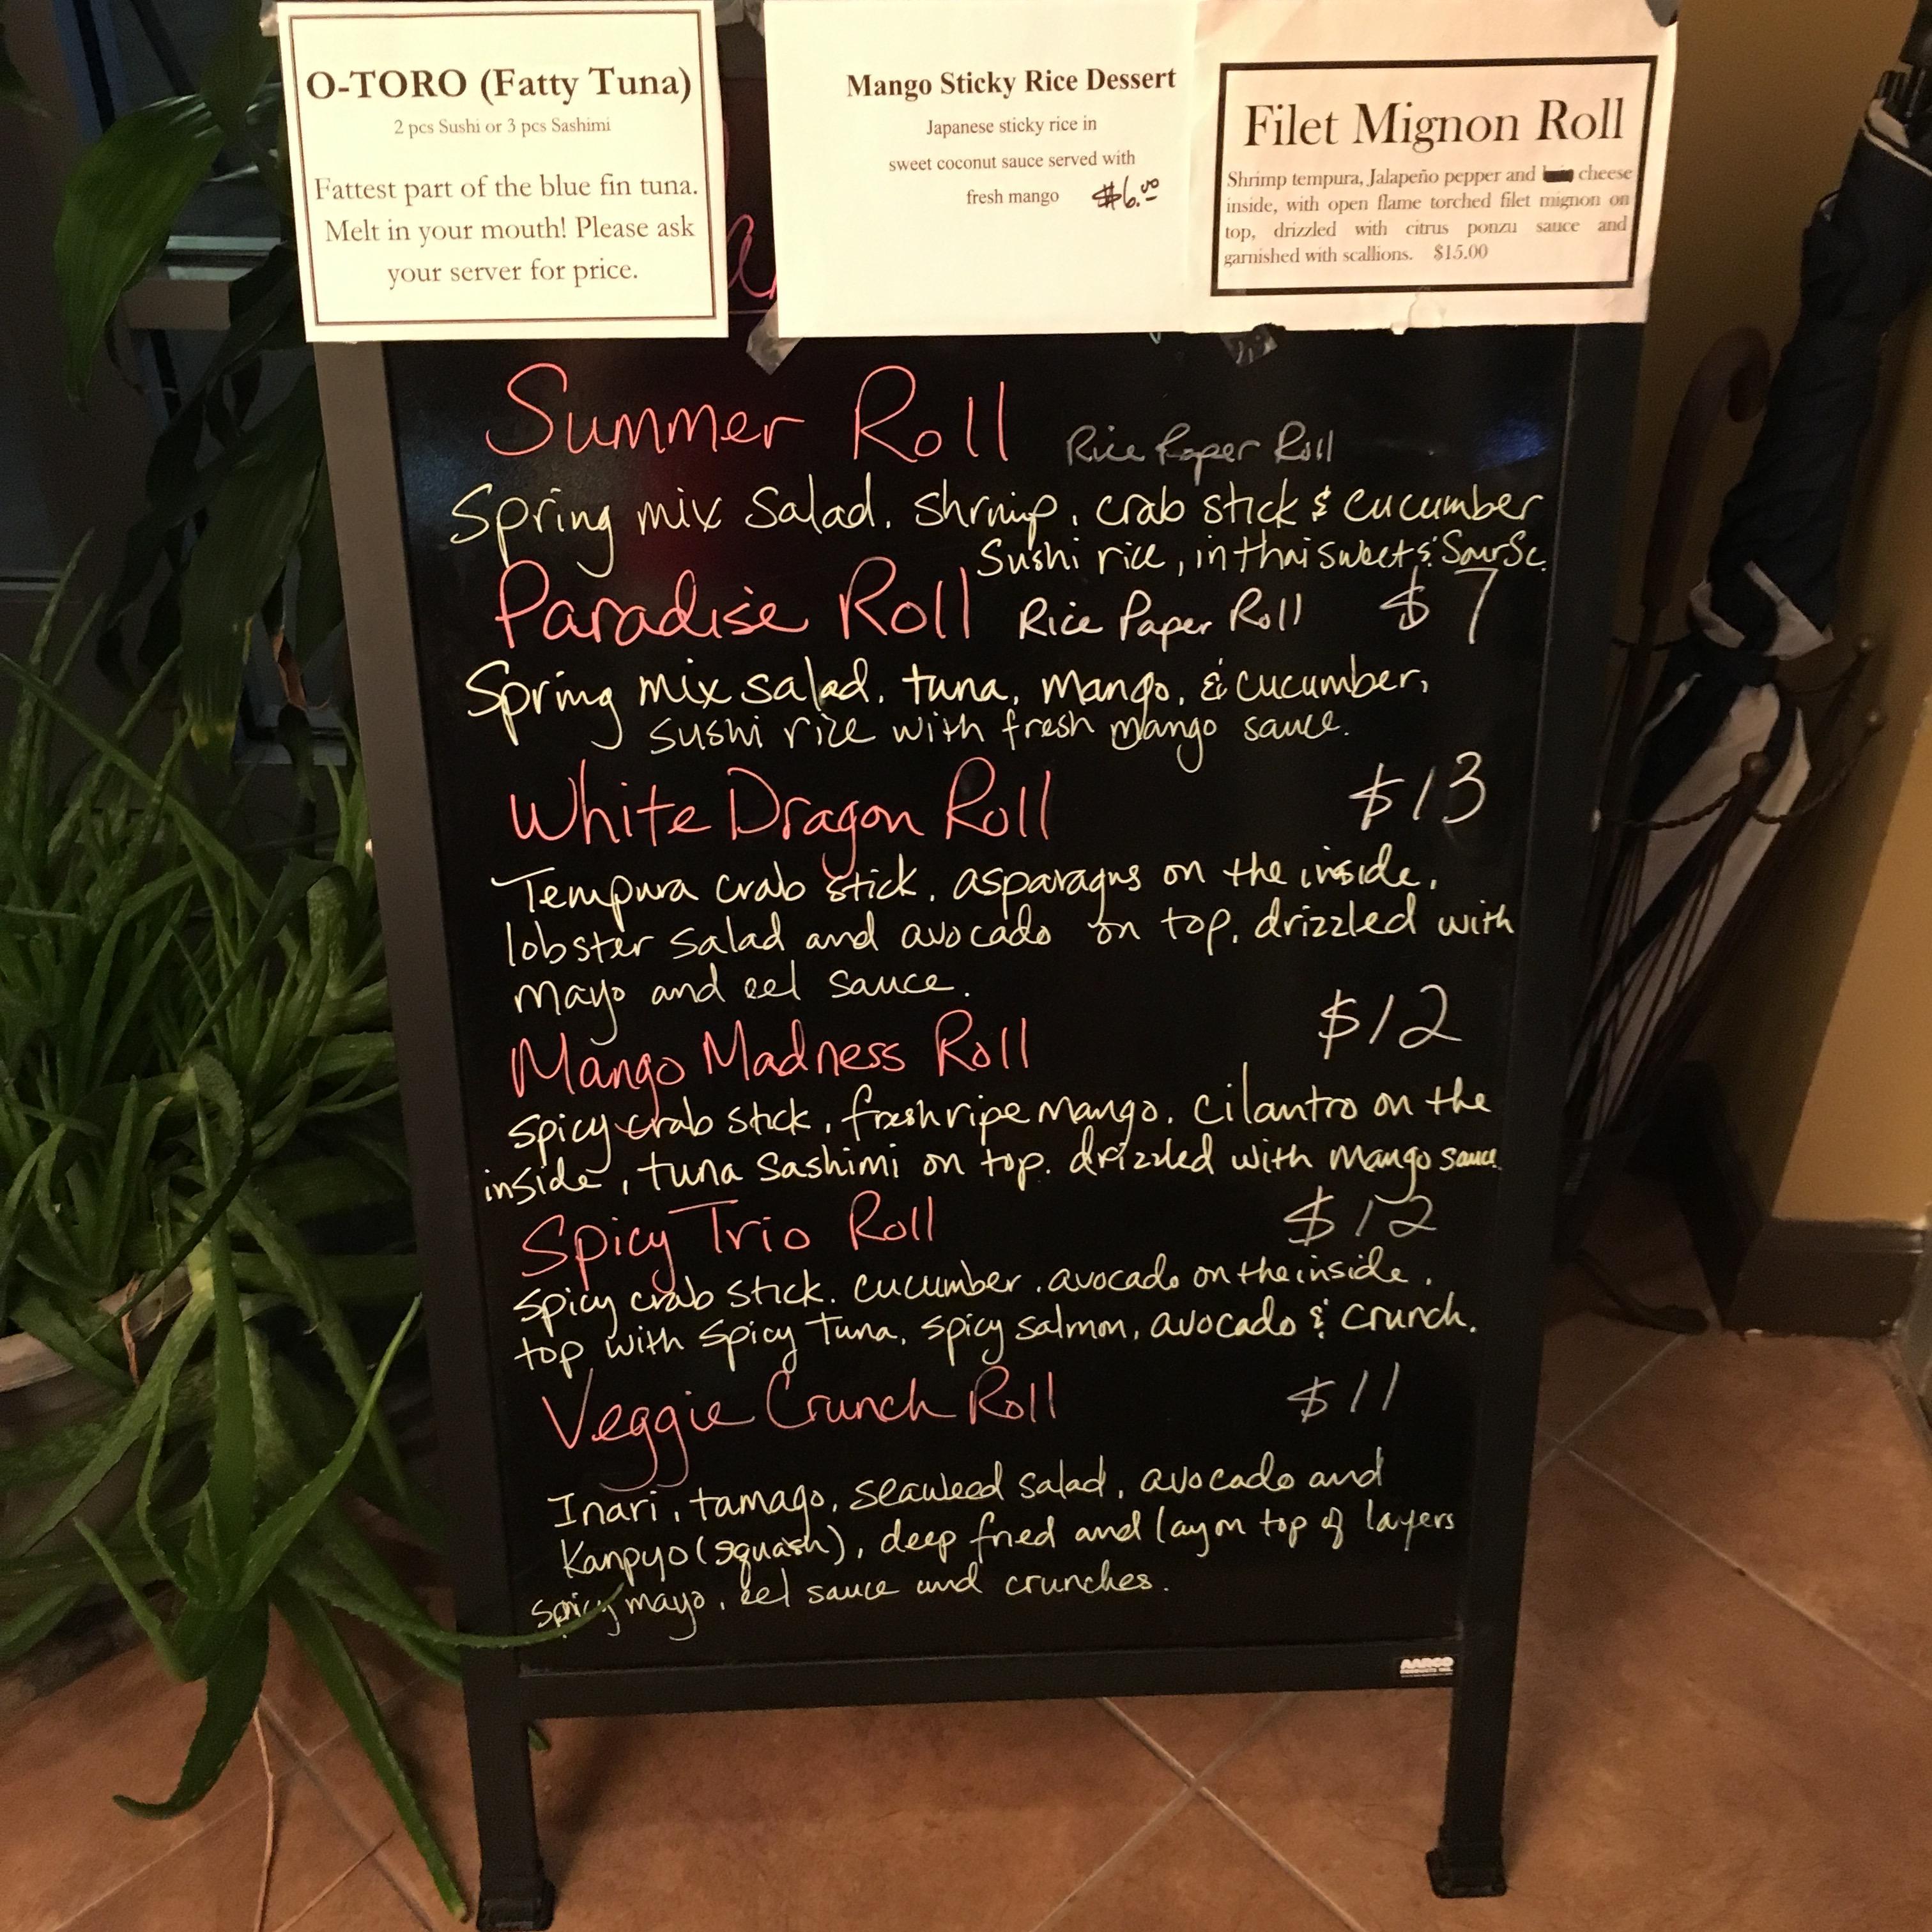 O-TORO (Fatty Tuna)
2 pcs Sushi or 3 pcs Sashimi
Fattest part of the blue fin tuna.
Melt in your mouth! Please ask
your server for price.
Mango Sticky Rice Dessert
Japanese sticky rice in
sweet coconut sauce served with
fresh mango $6.00
Filet Mignon Roll
Shrimp tempura, Jalapeño pepper and cheese
inside, with open flame torched filet mignon on
top, drizzled with citrus ponzu sauce and
garnished with scallions. $15.00
Summer Roll Rice Paper Roll
Spring mix Salad, shrimp, crab stick & cucumber
Sushi rice, in thai sweet & Sour Sc.
Paradise Roll Rice Paper Roll $7
Spring mix salad, tuna, mango, & cucumber,
sushi rice with fresh mango sauce.
White Dragon Roll $13
Tempura crab stick, asparagus on the inside,
lobster salad and avocado on top, drizzled with
mayo and eel sauce.
Mango Madness Roll $12
spicy crab stick, fresh ripe mango, cilantro on the
inside, tuna sashimi on top. drizzled with mango sauce
Spicy Trio Roll $12
spicy crab stick. cucumber, avocado on the inside.
top with spicy tuna, spicy salmon, avocado & crunch.
Veggie Crunch Roll $11
Inari, tamago, seaweed salad, avocado and
Kanpyo (squash), deep fried and lay on top of layers
spicy mayo, eel sauce and crunches.
AARCO
PRODUCTS INC.